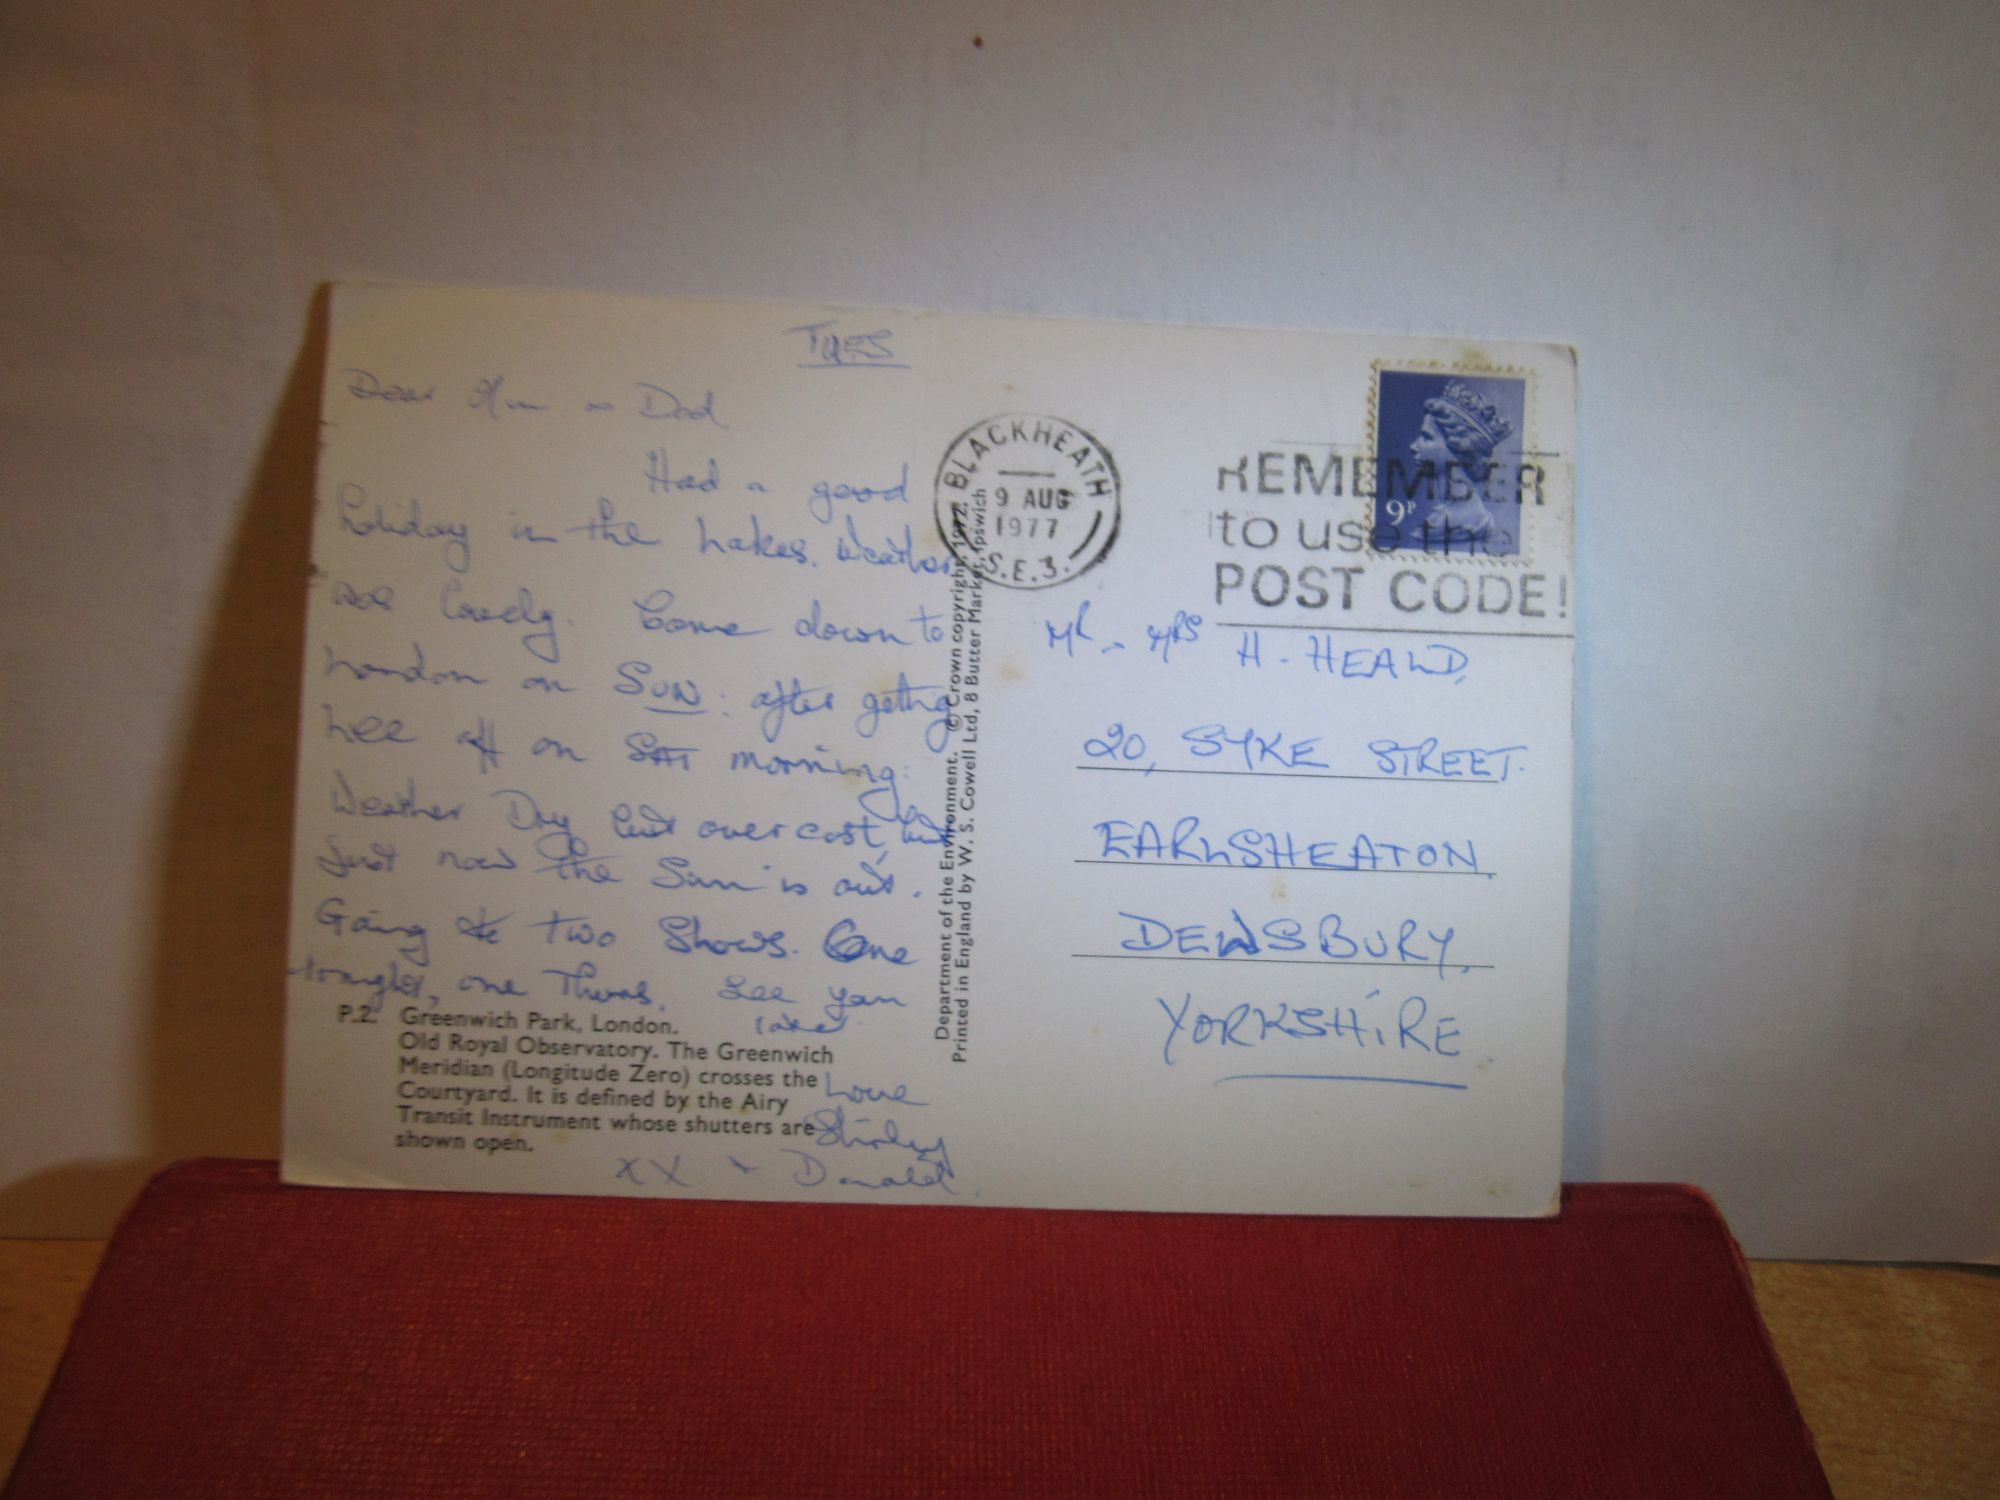 TUES
Dear Mum & Dad
Had a good
holiday in the Lakes. Weather
was lovely. Came down to
London on SUN: after getting
Lee off on SAT morning:
Weather Dry but overcast, but
just now the Sun is out.
Going to two Shows. One
tonight, one Thurs. See you
later.
Love
Shirley
XX & Donald.
P.2. Greenwich Park, London.
Old Royal Observatory. The Greenwich
Meridian (Longitude Zero) crosses the
Courtyard. It is defined by the Airy
Transit Instrument whose shutters are
shown open.
Department of the Environment. © Crown copyright, 1972.
Printed in England by W. S. Cowell Ltd, 8 Butter Market, Ipswich
BLACKHEATH
9 AUG
1977
S.E.3.
9P
REMEMBER
to use the
POST CODE!
MR & MRS H. HEALD,
20, SYKE STREET.
EARLSHEATON,
DEWSBURY,
YORKSHIRE.